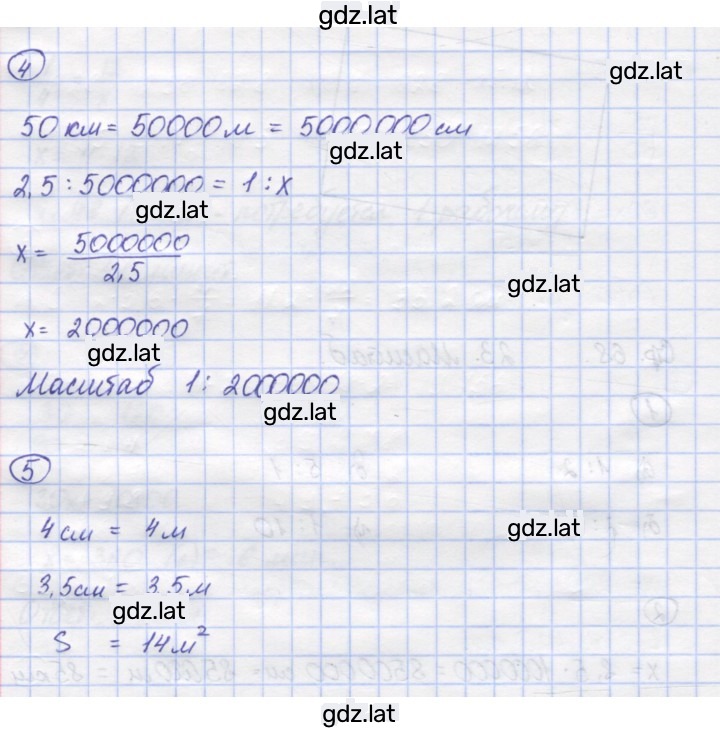 gdz.lat
4
gdz.lat
50 км = 50000 м = 5000000 см
gdz.lat
2,5 : 5000000 = 1 : x
gdz.lat
x = 5000000
2,5
gdz.lat
x = 2000000
gdz.lat
Масштаб 1 : 2000000
gdz.lat
5
4 см = 4 м
gdz.lat
3,5 см = 3,5 м
gdz.lat
S = 14 м²
gdz.lat